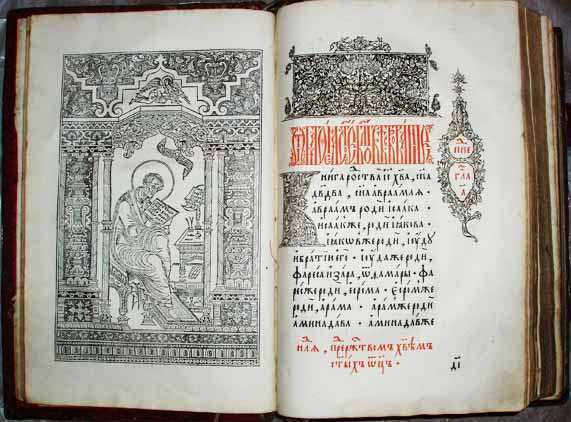 Книга рⷪ҇ства і҃с х҃ва, сн҃а
дв҃два, сн҃а авраамлѧ.
авраамъ роди исаака
исаакже, роди іꙗкова
іꙗковже роди, іꙋдꙋ
ибратїю єго. іꙋдаже роди,
фареса изара, ѿ ѳамары. фа
ресже роди, есрома. Есромже
роди, арама. арамже роди
аминадава. аминадавже
гла
прерⷤ҇твомъ хв҃ымъ
ст҃ыхъ ѿц҃ъ.
д҃і